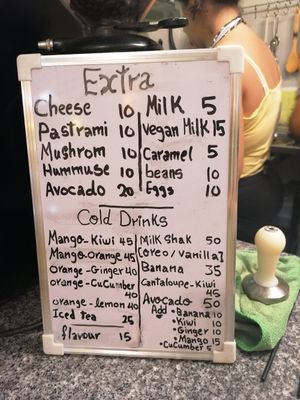 Extra
Cheese 10
Pastrami 10
Mushrom 10
Hummuse 10
Avocado 20
Milk 5
Vegan Milk 15
Caramel 5
beans 10
Eggs 10
Cold Drinks
Mango-Kiwi 45
Mango-orange 45
orange-Ginger 40
orange-CuCumber
40
orange-lemon 40
Iced tea 25
flavour 15
MilK Shak 50
(oreo/vanilla)
Banana 35
Cantaloupe-Kiwi
45
Avocado 50
Add • Banana 10
• Kiwi 10
• Ginger 10
• Mango 15
• CuCumber 5